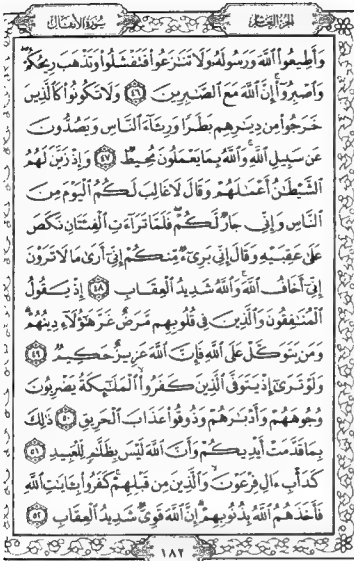 سورة الأنفال الجزء العاشر
وَأَطِيعُوا۟ ٱللَّهَ وَرَسُولَهُۥ وَلَا تَنَٰزَعُوا۟ فَتَفْشَلُوا۟ وَتَذْهَبَ رِيحُكُمْ ۖ
وَٱصْبِرُوٓا۟ ۚ إِنَّ ٱللَّهَ مَعَ ٱلصَّٰبِرِينَ ٤٦ وَلَا تَكُونُوا۟ كَٱلَّذِينَ
خَرَجُوا۟ مِن دِيَٰرِهِم بَطَرًا وَرِئَآءَ ٱلنَّاسِ وَيَصُدُّونَ
عَن سَبِيلِ ٱللَّهِ ۚ وَٱللَّهُ بِمَا يَعْمَلُونَ مُحِيطٌ ٤٧ وَإِذْ زَيَّنَ لَهُمُ
ٱلشَّيْطَٰنُ أَعْمَٰلَهُمْ وَقَالَ لَا غَالِبَ لَكُمُ ٱلْيَوْمَ مِنَ
ٱلنَّاسِ وَإِنِّى جَارٌ لَّكُمْ ۖ فَلَمَّا تَرَآءَتِ ٱلْفِئَتَانِ نَكَصَ
عَلَىٰ عَقِبَيْهِ وَقَالَ إِنِّى بَرِىٓءٌ مِّنكُمْ إِنِّىٓ أَرَىٰ مَا لَا تَرَوْنَ
إِنِّىٓ أَخَافُ ٱللَّهَ ۚ وَٱللَّهُ شَدِيدُ ٱلْعِقَابِ ٤٨ إِذْ يَقُولُ
ٱلْمُنَٰفِقُونَ وَٱلَّذِينَ فِى قُلُوبِهِم مَّرَضٌ غَرَّ هَٰٓؤُلَآءِ دِينُهُمْ ۗ
وَمَن يَتَوَكَّلْ عَلَى ٱللَّهِ فَإِنَّ ٱللَّهَ عَزِيزٌ حَكِيمٌ ٤٩
وَلَوْ تَرَىٰٓ إِذْ يَتَوَفَّى ٱلَّذِينَ كَفَرُوا۟ ۙ ٱلْمَلَٰٓئِكَةُ يَضْرِبُونَ
وُجُوهَهُمْ وَأَدْبَٰرَهُمْ وَذُوقُوا۟ عَذَابَ ٱلْحَرِيقِ ٥٠ ذَٰلِكَ
بِمَا قَدَّمَتْ أَيْدِيكُمْ وَأَنَّ ٱللَّهَ لَيْسَ بِظَلَّٰمٍ لِّلْعَبِيدِ ٥١
كَدَأْبِ ءَالِ فِرْعَوْنَ ۙ وَٱلَّذِينَ مِن قَبْلِهِمْ ۚ كَفَرُوا۟ بِـَٔايَٰتِ ٱللَّهِ
فَأَخَذَهُمُ ٱللَّهُ بِذُنُوبِهِمْ ۗ إِنَّ ٱللَّهَ قَوِىٌّ شَدِيدُ ٱلْعِقَابِ ٥٢
١٨٢